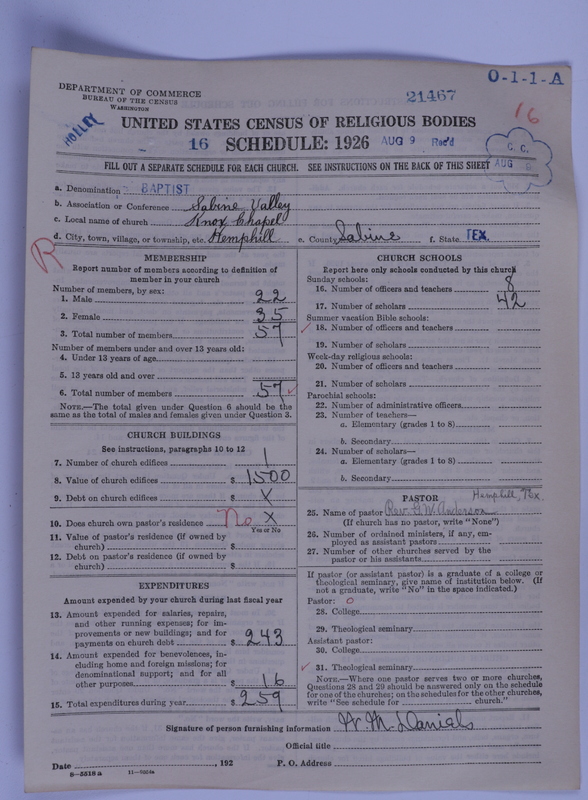 O-1-1-A
DEPARTMENT OF COMMERCE
BUREAU OF THE CENSUS
WASHINGTON
21467
16
HOLLEY
UNITED STATES CENSUS OF RELIGIOUS BODIES
16 SCHEDULE: 1926 AUG 9 Rec'd
C. C.
AUG
FILL OUT A SEPARATE SCHEDULE FOR EACH CHURCH. SEE INSTRUCTIONS ON THE BACK OF THIS SHEET
a. Denomination BAPTIST
b. Association or Conference Sabine Valley
c. Local name of church Knox Chapel
d. City, town, village, or township, etc. Hemphill e. County Sabine f. State TEX.
R
MEMBERSHIP
Report number of members according to definition of
member in your church
Number of members, by sex:
1. Male 22
2. Female 35
3. Total number of members 57
Number of members under and over 13 years old:
4. Under 13 years of age
5. 13 years old and over
6. Total number of members 57
NOTE.—The total given under Question 6 should be the
same as the total of males and females given under Question 3.
CHURCH BUILDINGS
See instructions, paragraphs 10 to 12
7. Number of church edifices 1
8. Value of church edifices $ 1500
9. Debt on church edifices $ X
10. Does church own pastor's residence No X
Yes or No
11. Value of pastor's residence (if owned by
church) $
12. Debt on pastor's residence (if owned by
church) $
EXPENDITURES
Amount expended by your church during last fiscal year
13. Amount expended for salaries, repairs,
and other running expenses; for im-
provements or new buildings; and for
payments on church debt $ 243
14. Amount expended for benevolences, in-
cluding home and foreign missions; for
denominational support; and for all
other purposes $ 16
15. Total expenditures during year $ 259
CHURCH SCHOOLS
Report here only schools conducted by this church
Sunday schools:
16. Number of officers and teachers 8
17. Number of scholars 42
Summer vacation Bible schools:
18. Number of officers and teachers
19. Number of scholars
Week-day religious schools:
20. Number of officers and teachers
21. Number of scholars
Parochial schools:
22. Number of administrative officers
23. Number of teachers—
a. Elementary (grades 1 to 8)
b. Secondary
24. Number of scholars—
a. Elementary (grades 1 to 8)
b. Secondary
PASTOR Hemphill, Tex.
25. Name of pastor Rev. G. W. Anderson
(If church has no pastor, write "None")
26. Number of ordained ministers, if any, em-
ployed as assistant pastors
27. Number of other churches served by the
pastor or his assistants
If pastor (or assistant pastor) is a graduate of a college or
theological seminary, give name of institution below. (If
not a graduate, write "No" in the space indicated.)
Pastor: 0
28. College
29. Theological seminary
Assistant pastor:
30. College
31. Theological seminary
NOTE.—Where one pastor serves two or more churches,
Questions 28 and 29 should be answered only on the schedule
for one of the churches; on the schedules for the other churches,
write "See schedule for church."
Signature of person furnishing information W. M. Danials
Official title
Date , 192 P. O. Address
8-5518 a